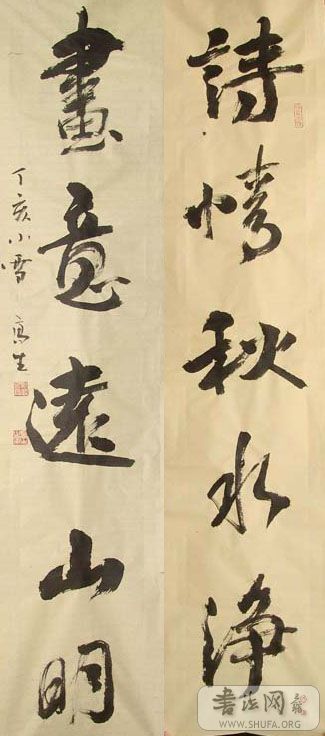 詩情秋水淨
畫意遠山明
丁亥小雪
書法网
WWW.SHUFA.ORG